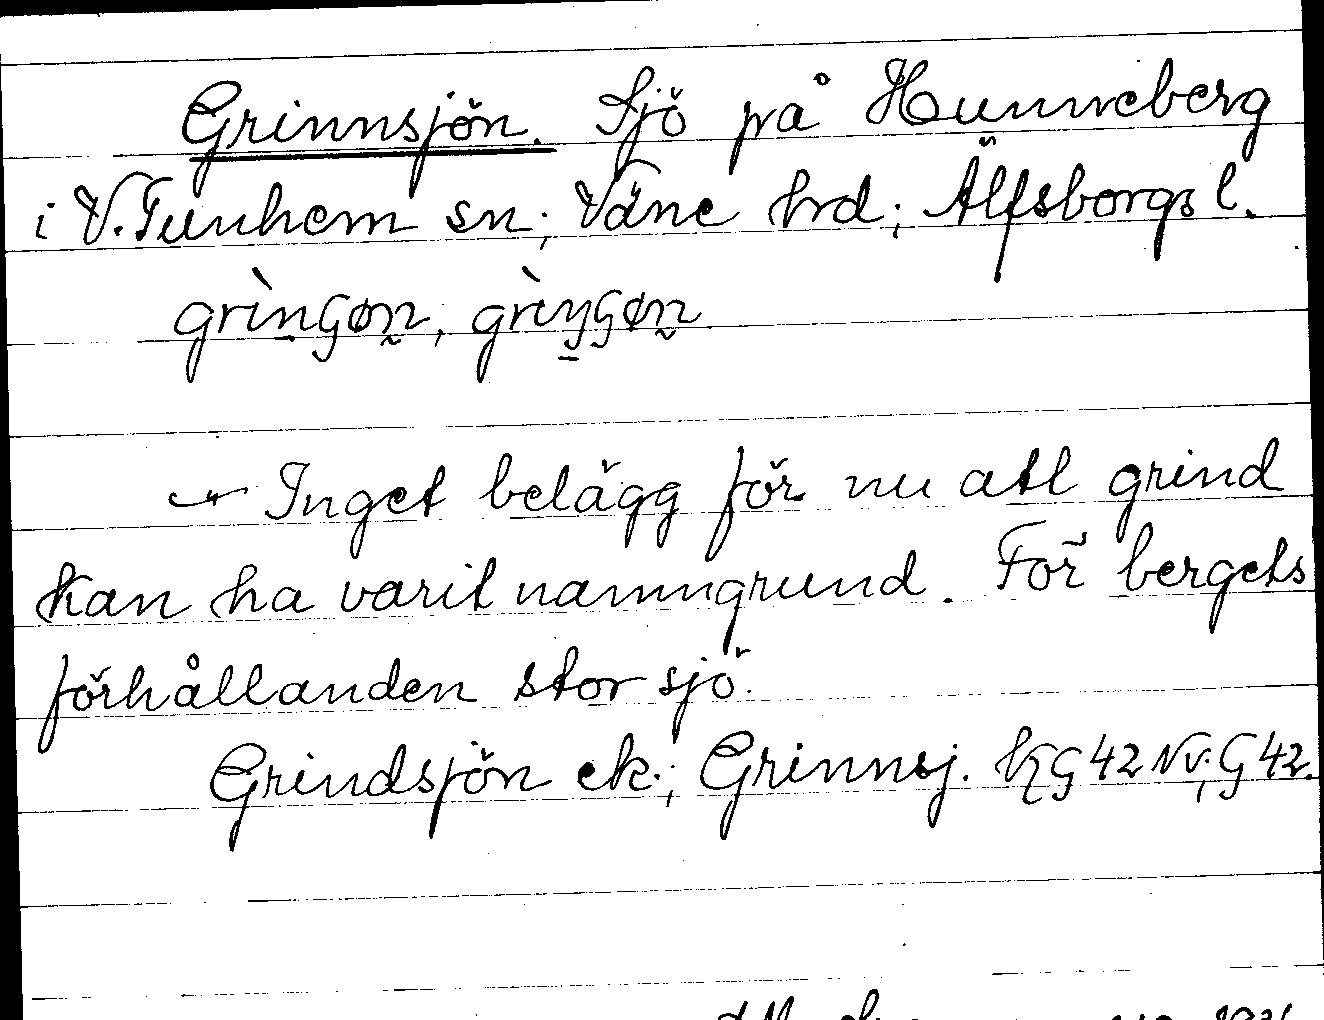 Grinnsjön. Sjö på Hunneberg
i V. Tunhem sn; Väne hrd; Älfsborgs l.
grìnʂøn, grìŋʂøn
Inget belägg för nu att grind
kan ha varit namngrund. För bergets
förhållanden stor sjö.
Grindsjön ek.; Grinnsj. G 42 NV; G 42.